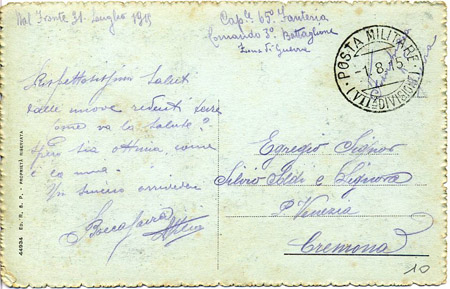 Dal Fronte 31. Luglio 1915
Rispettosissimi Saluti
Dalle nuove redenti terre
come va la salute?
Spero sia ottima, come
è la mia.
Un sincero arrivederci
Cap.le 65° Fanteria
Comando 3° Battaglione
Zona di Guerra
POSTA MILITARE
-1.8.15
DIVISIONE)
Egregio Signor
Silvio Soldi e Signora
P. Venezia
Cremona
10
44934 ED. R. S. P. - PROPRIETÀ RISERVATA